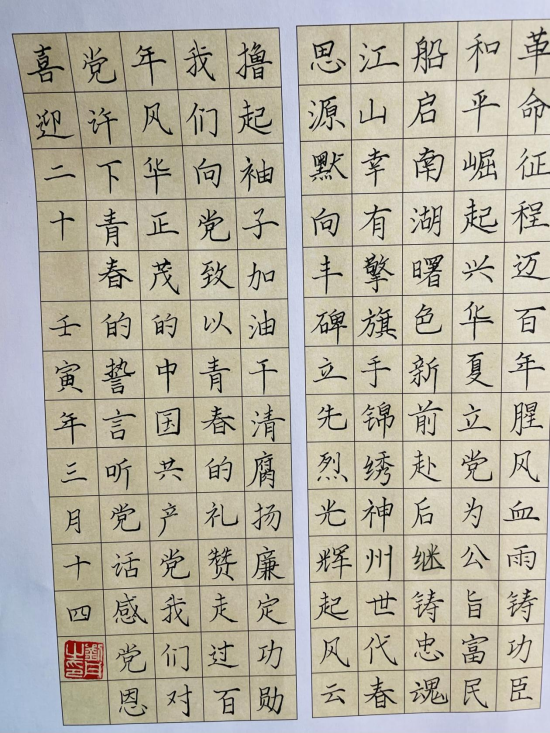 革命征程迈百年腥风血雨铸功臣
和平崛起兴华夏立党为公旨富民
船启南湖曙色新前赴后继铸忠魂
江山幸有擎旗手锦绣神州世代春
思源默向丰碑立先烈光辉起风云
撸起袖子加油干清腐扬廉定功勋
我们向党致以青春的礼赞走过百
年风华正茂的中国共产党我们对
党许下青春的誓言听党话感党恩
喜迎二十 壬寅年三月十四